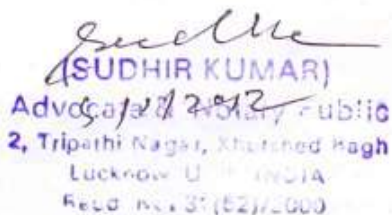 (SUDHIR KUMAR)
Advocate & Notary Public
2, Tripathi Nagar, Khurshed Bagh
Lucknow U INDIA
Regd No. 31(52)/2000